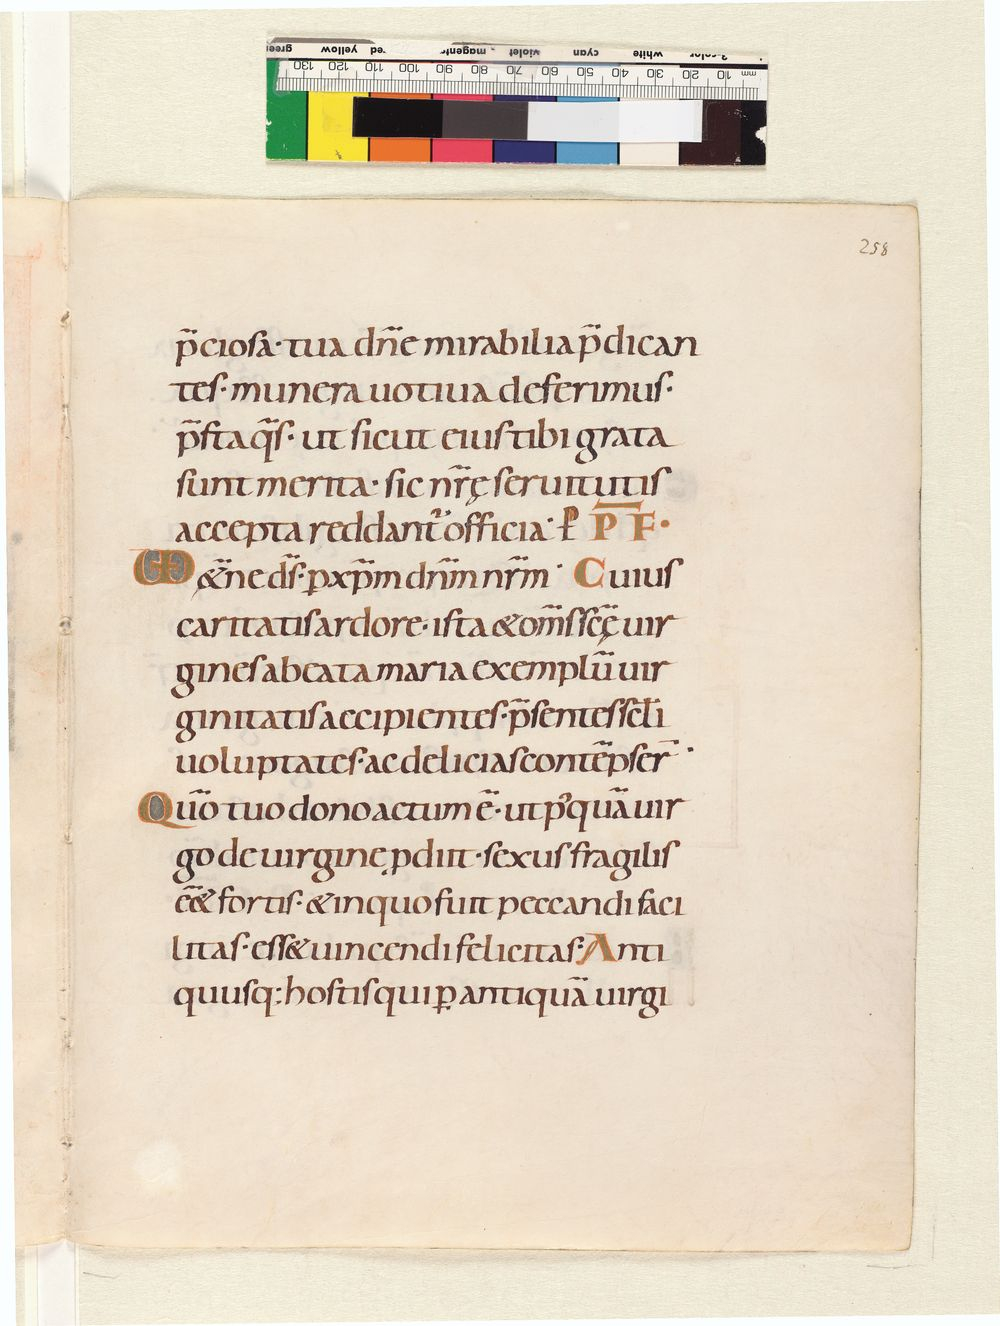 258
p̄ciosa· tua dn̄e mirabilia p̄dican
tes· munera uotiua deferimus·
p̄sta q̄s· ut sicut eius tibi grata
sunt merita· sic nr̄ę seruitutis
accepta reddant᷑ officia· ꝑ P̄F̄·
UD &̄ne ds̄· p xp̄m dn̄m nr̄m· Cuius
caritatis ardore· ista & om̄s sc̄ę uir
gines a beata maria exemplū uir
ginitatis accipientes· p̄sentis sc̄li
uoluptates· ac delicias contēpser̄·
Quō tuo dono actum ē· ut pꝰquā uir
go de uirgine ꝓdiit· sexus fragilis
eē& fortis· & in quo fuit peccandi faci
litas· ess& uincendi felicitas· Anti
quusq: hostis qui ꝑ antiquā uirgi
mm 10 20 30 40 50 60 70 80 90 100 110 120 130
3-color white cyan violet magenta red yellow green